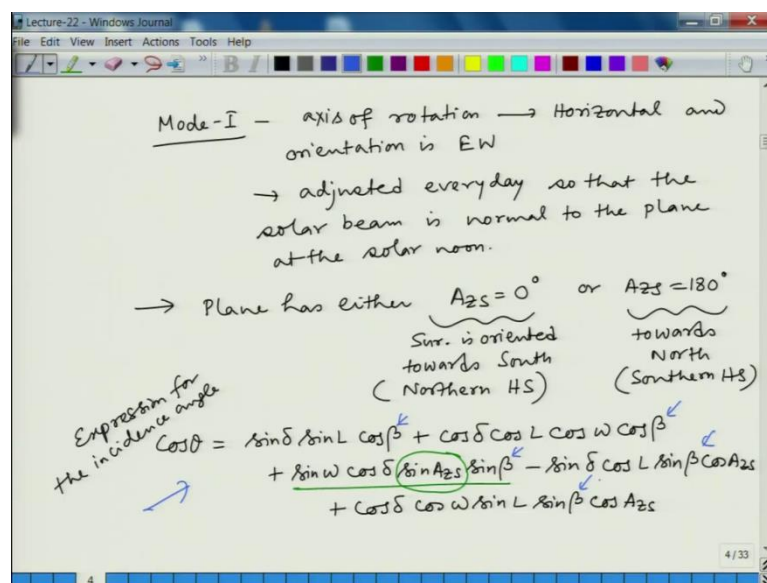 Lecture-22 - Windows Journal
File Edit View Insert Actions Tools Help
Mode-I - axis of rotation → Horizontal and
orientation is EW
→ adjusted everyday so that the
solar beam is normal to the plane
at the solar noon.
→ Plane has either AZS = 0° or AZS = 180°
Sur. is oriented
towards South
(Northern HS)
towards
North
(Southern HS)
Expression for
the incidence angle
Cosθ = sinδ sin L cosβ + cosδ cos L cos w cosβ
+ sin w cosδ sin AZS sinβ - sinδ cos L sinβ cos AZS
+ cosδ cos w sin L sinβ cos AZS
4/33
4